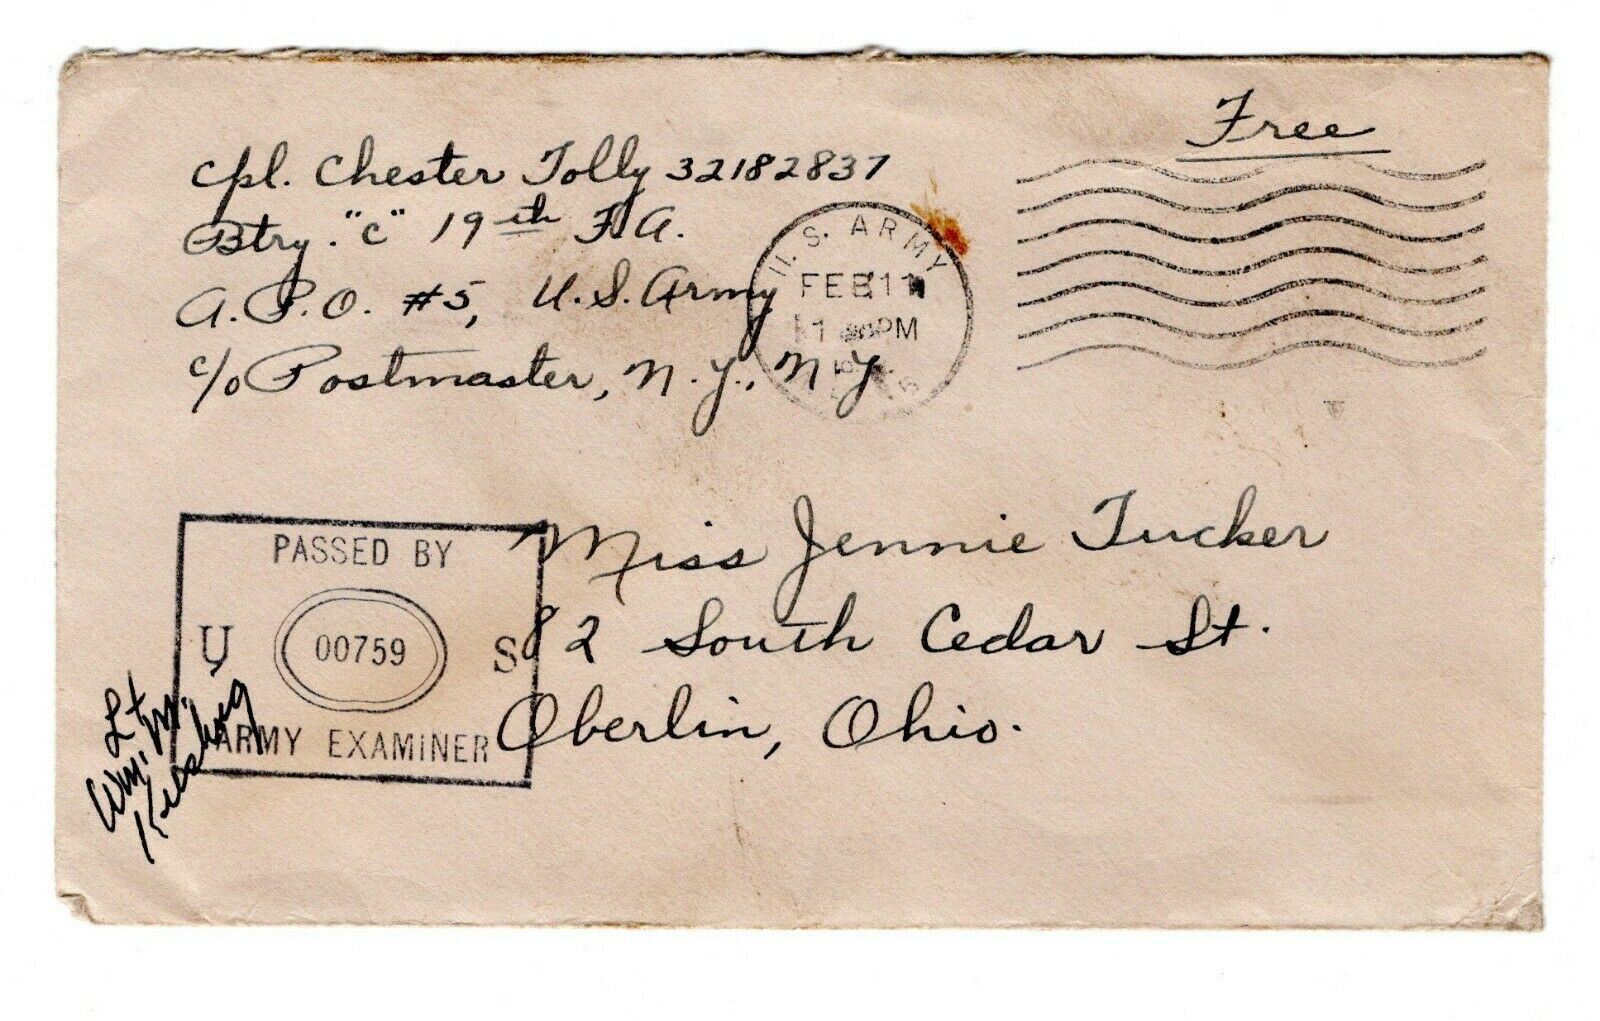 Free
Cpl. Chester Tolly 32182837
Btry. "C" 19th F.A.
A.P.O. #5, U.S. Army
c/o Postmaster, N.Y., N.Y.
U.S. ARMY
FEB 11
1 PM
Miss Jennie Tucker
82 South Cedar St.
Oberlin, Ohio.
PASSED BY
U 00759 S
ARMY EXAMINER
Lt.
Wm. M.